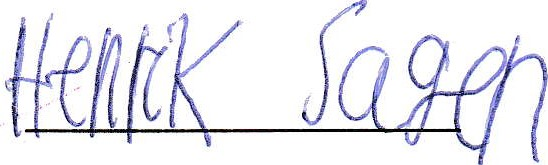 Henrik Sagen